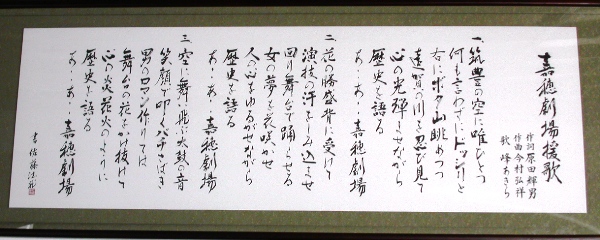 嘉穂劇場援歌
作詞 原田輝男
作曲 今村弘祥
歌 峰あきら
一、筑豊の空に唯ひとつ
何も言わずにドッシリと
右にボタ山眺めつつ
遠賀の川を忍び見て
心の光輝かせながら
歴史を語る
あゝあゝ 嘉穂劇場
二、花の勝盛背に受けて
演技の汗をしみ込ませ
回り舞台で踊らせる
女の夢を花咲かせ
人の心をゆるがせながら
歴史を語る
あゝあゝ 嘉穂劇場
三、空に舞飛ぶ太鼓の音
笑顔で叩くバチさばき
男のロマン作りては
舞台の花道かけ抜けて
心の炎花火のように
歴史を語る
あゝあゝ 嘉穂劇場
書 佐藤